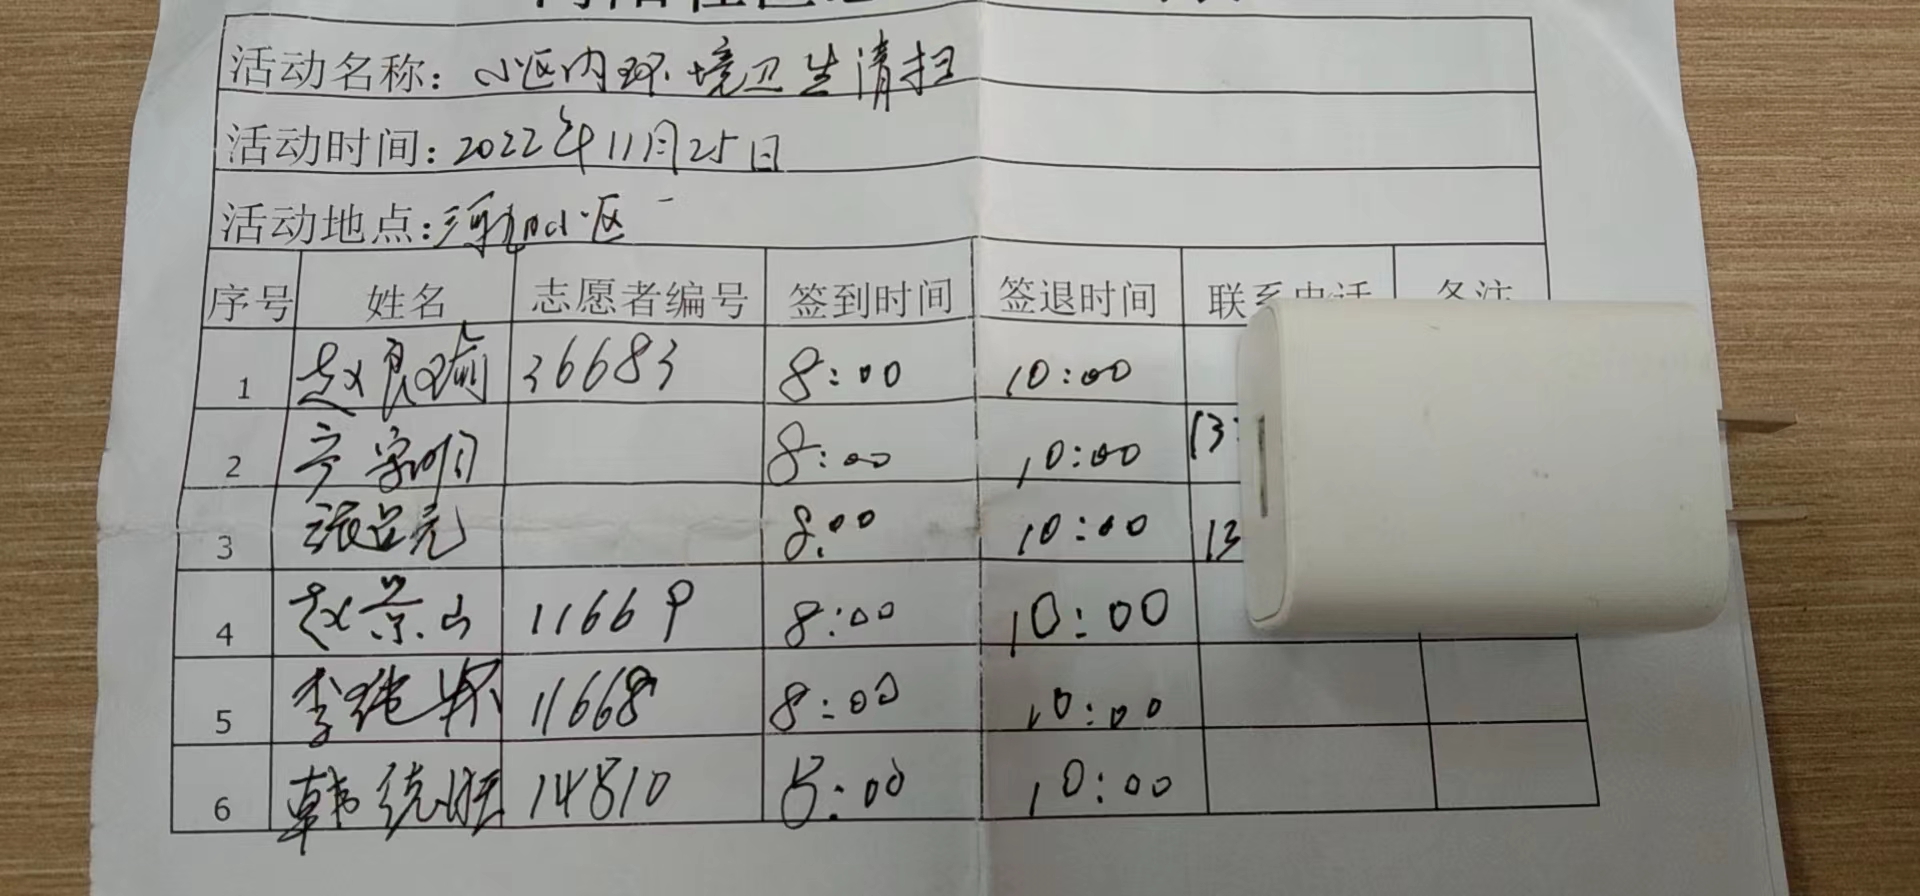 活动名称：小区内环境卫生清扫
活动时间：2022年11月25日
活动地点：小区
序号 姓名 志愿者编号 签到时间 签退时间 联系电话 备注
1 赵良瑜 36683 8:00 10:00
2 8:00 10:00 13
3 张占亮 8:00 10:00 13
4 赵景山 11669 8:00 10:00
5 李继 11668 8:00 10:00
6 韩 14810 8:00 10:00